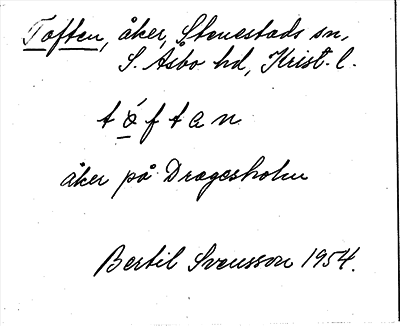 Toften, åker, Stenestads sn,
S. Åsbo hd, Krist. l.
tóftan
åker på Dragesholm
Bertil Svensson 1954.